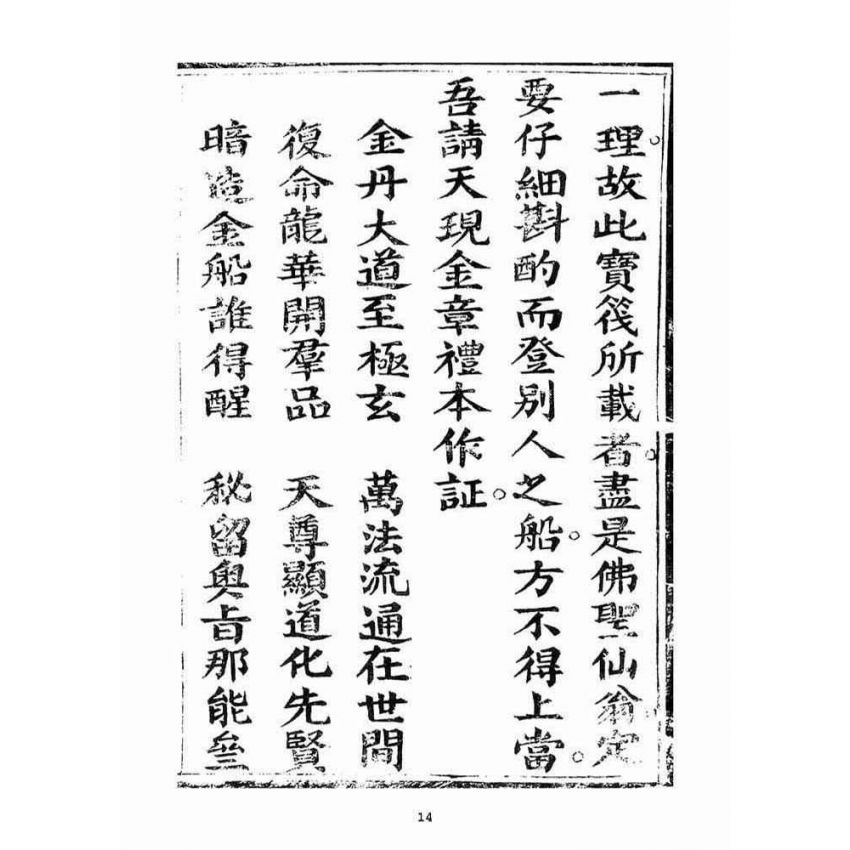 一理。故此寶筏所載者。盡是佛聖仙翁。定
要仔細斟酌而登別人之船。方不得上當。
吾請天現金章禮本作証。
金丹大道至極玄　萬法流通在世間
復命龍華開羣品　天尊顯道化先賢
暗造金船誰得醒　秘留奥旨那能叅
14